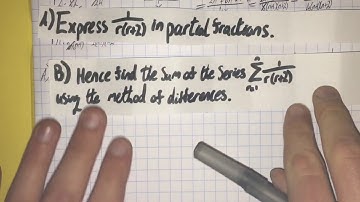 A) Express 1/r(r+2) in partial fractions.
B) Hence find the Sum of the Series n Σ r=1 1/r(r+2)
using the method of differences.